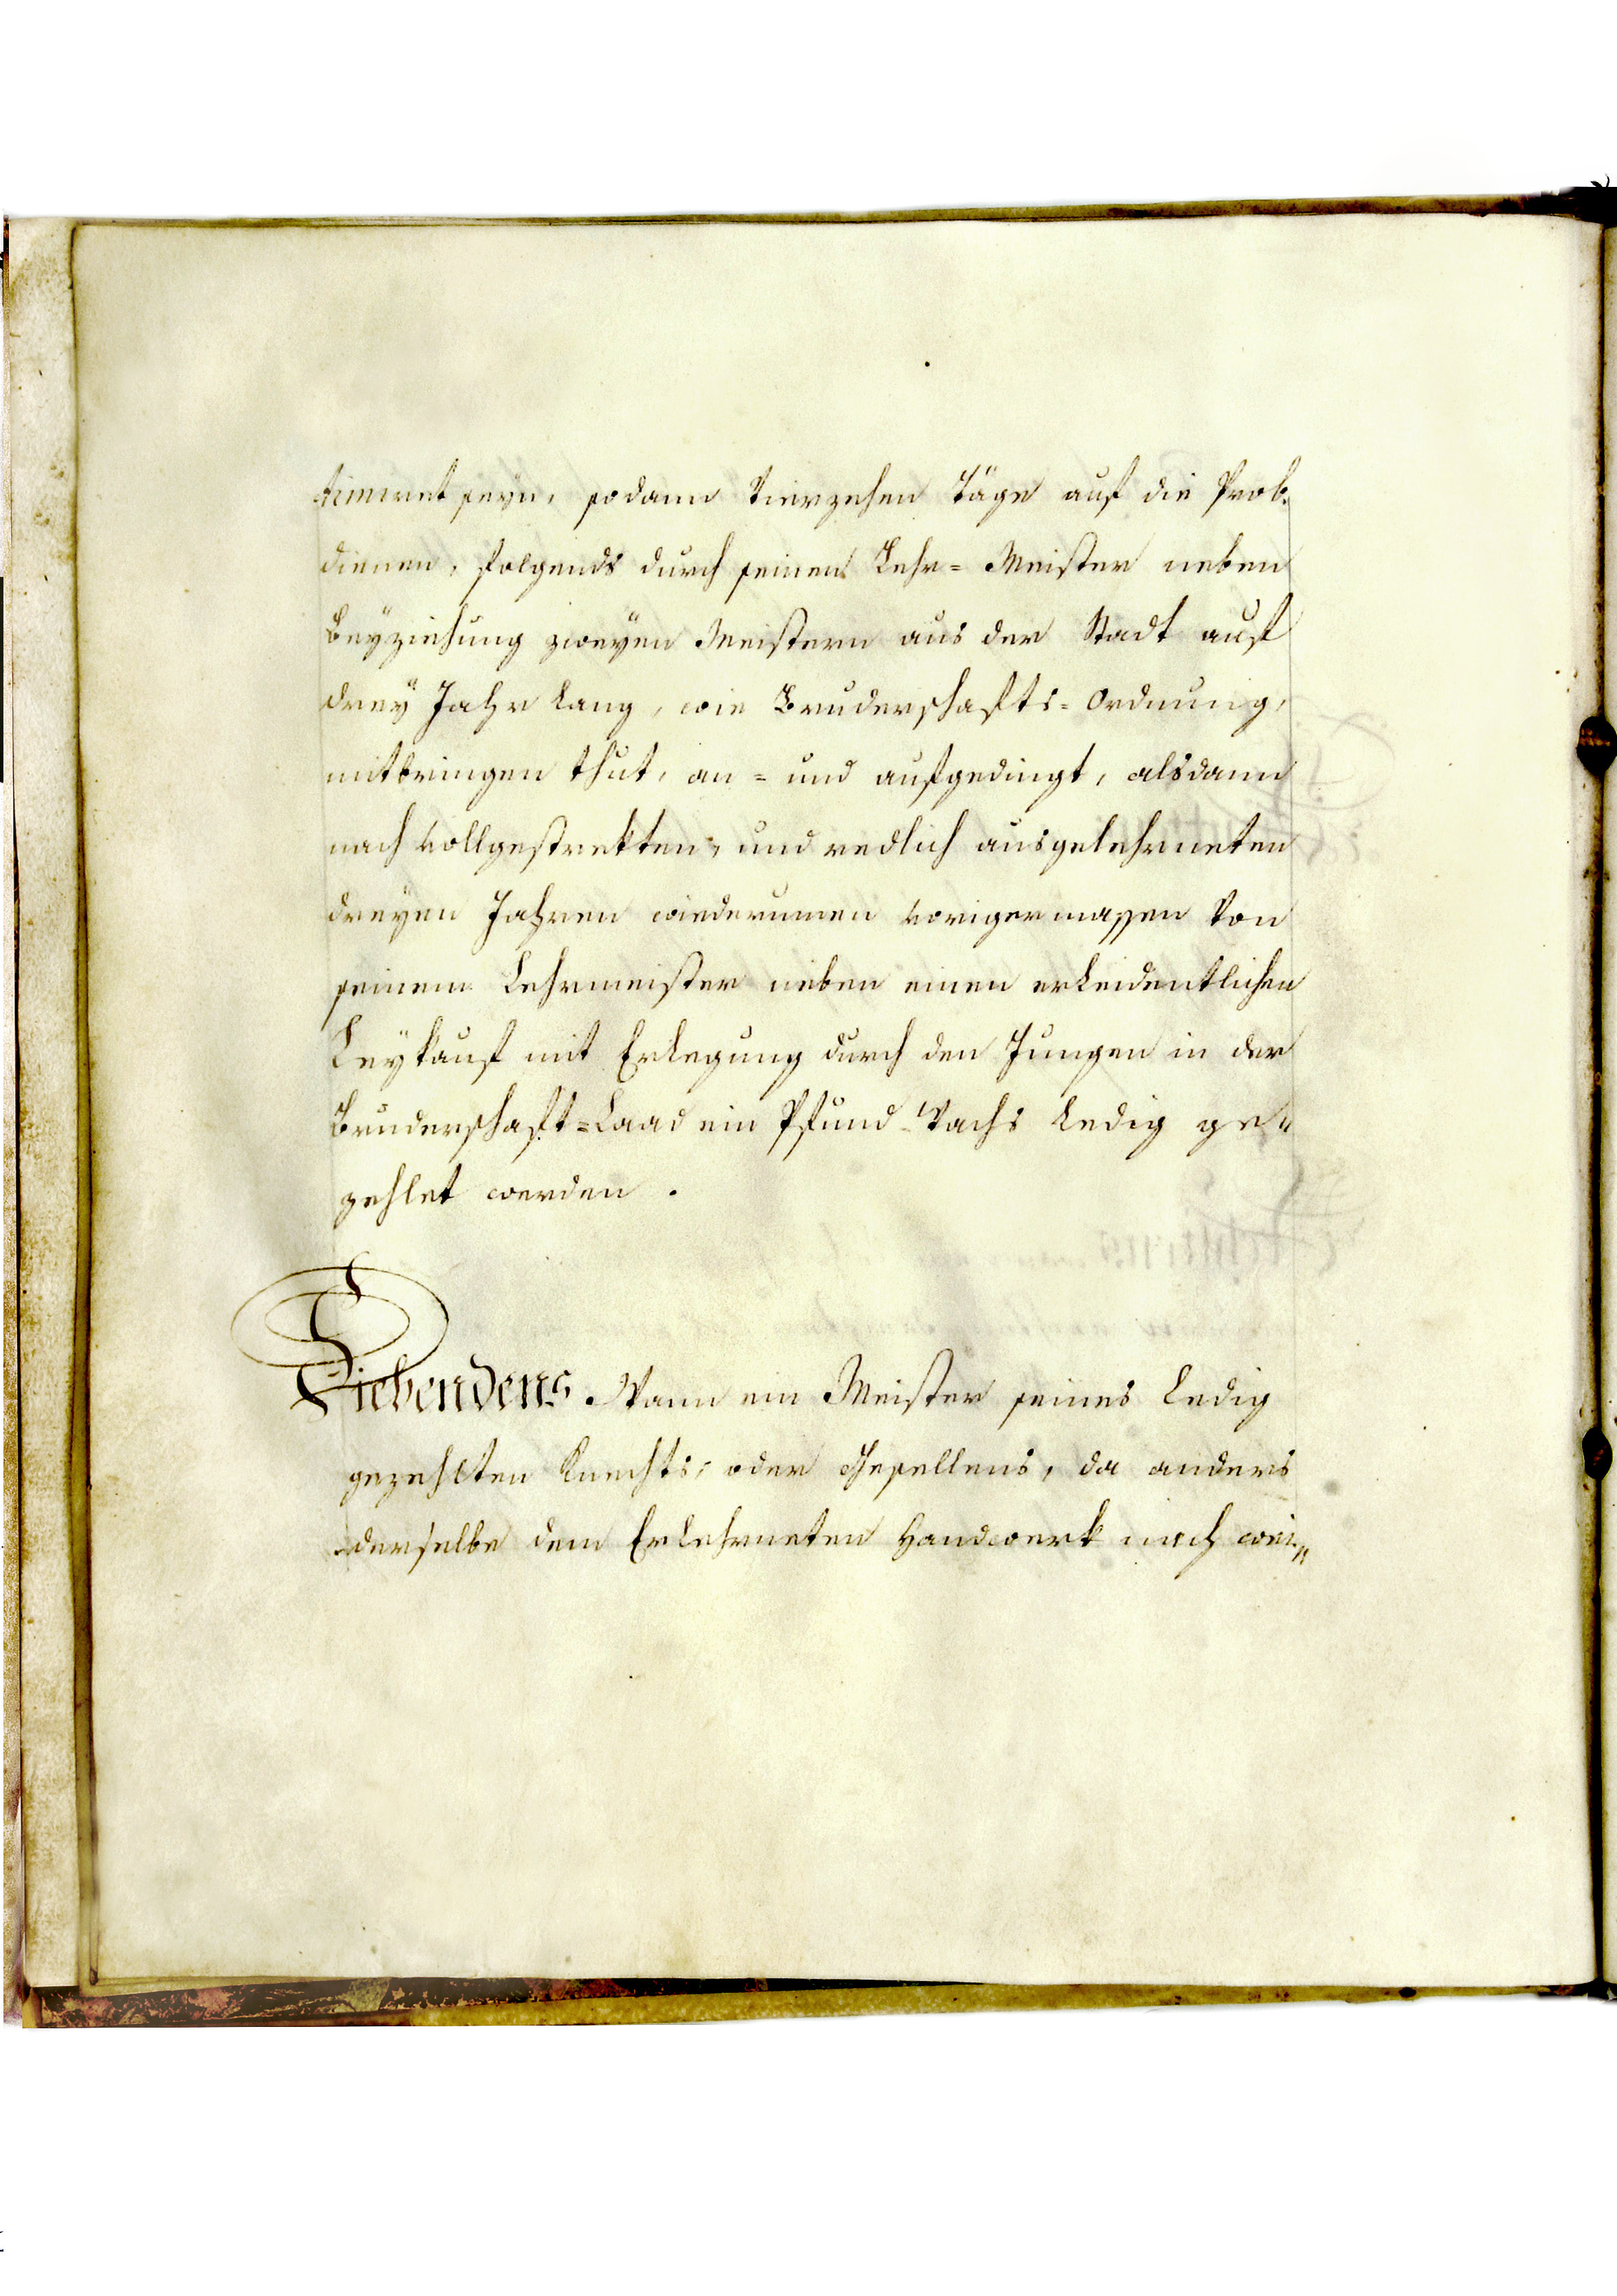 timiret seyn, sodann Vierzehen Täge auf die Prob.
dienen, folgends durch seinen Lehr= Meister neben
Beyziehung zweyen Meistern aus der Stadt auf
drey Jahr lang, wie Bruderschafts=Ordnung,
mitbringen thut, an= und aufgedingt, alsdann
nach vollgestrekten, und redlich ausgelehrneten
dreyen Jahren wiederumen vorigermassen Von
seinem Lehrmeister neben einen erleidentlichen
Leykauf mit Erlegung durch den Jungen in der
Bruderschaft=Laad ein Pfund Wachs Ledig ge„
zehlet werden.
Siebendens Wann ein Meister seines Ledig
gezehlten Knechts, oder Gesellens, da anders
derselbe dem Erlehrneten Handwerk nach wei„